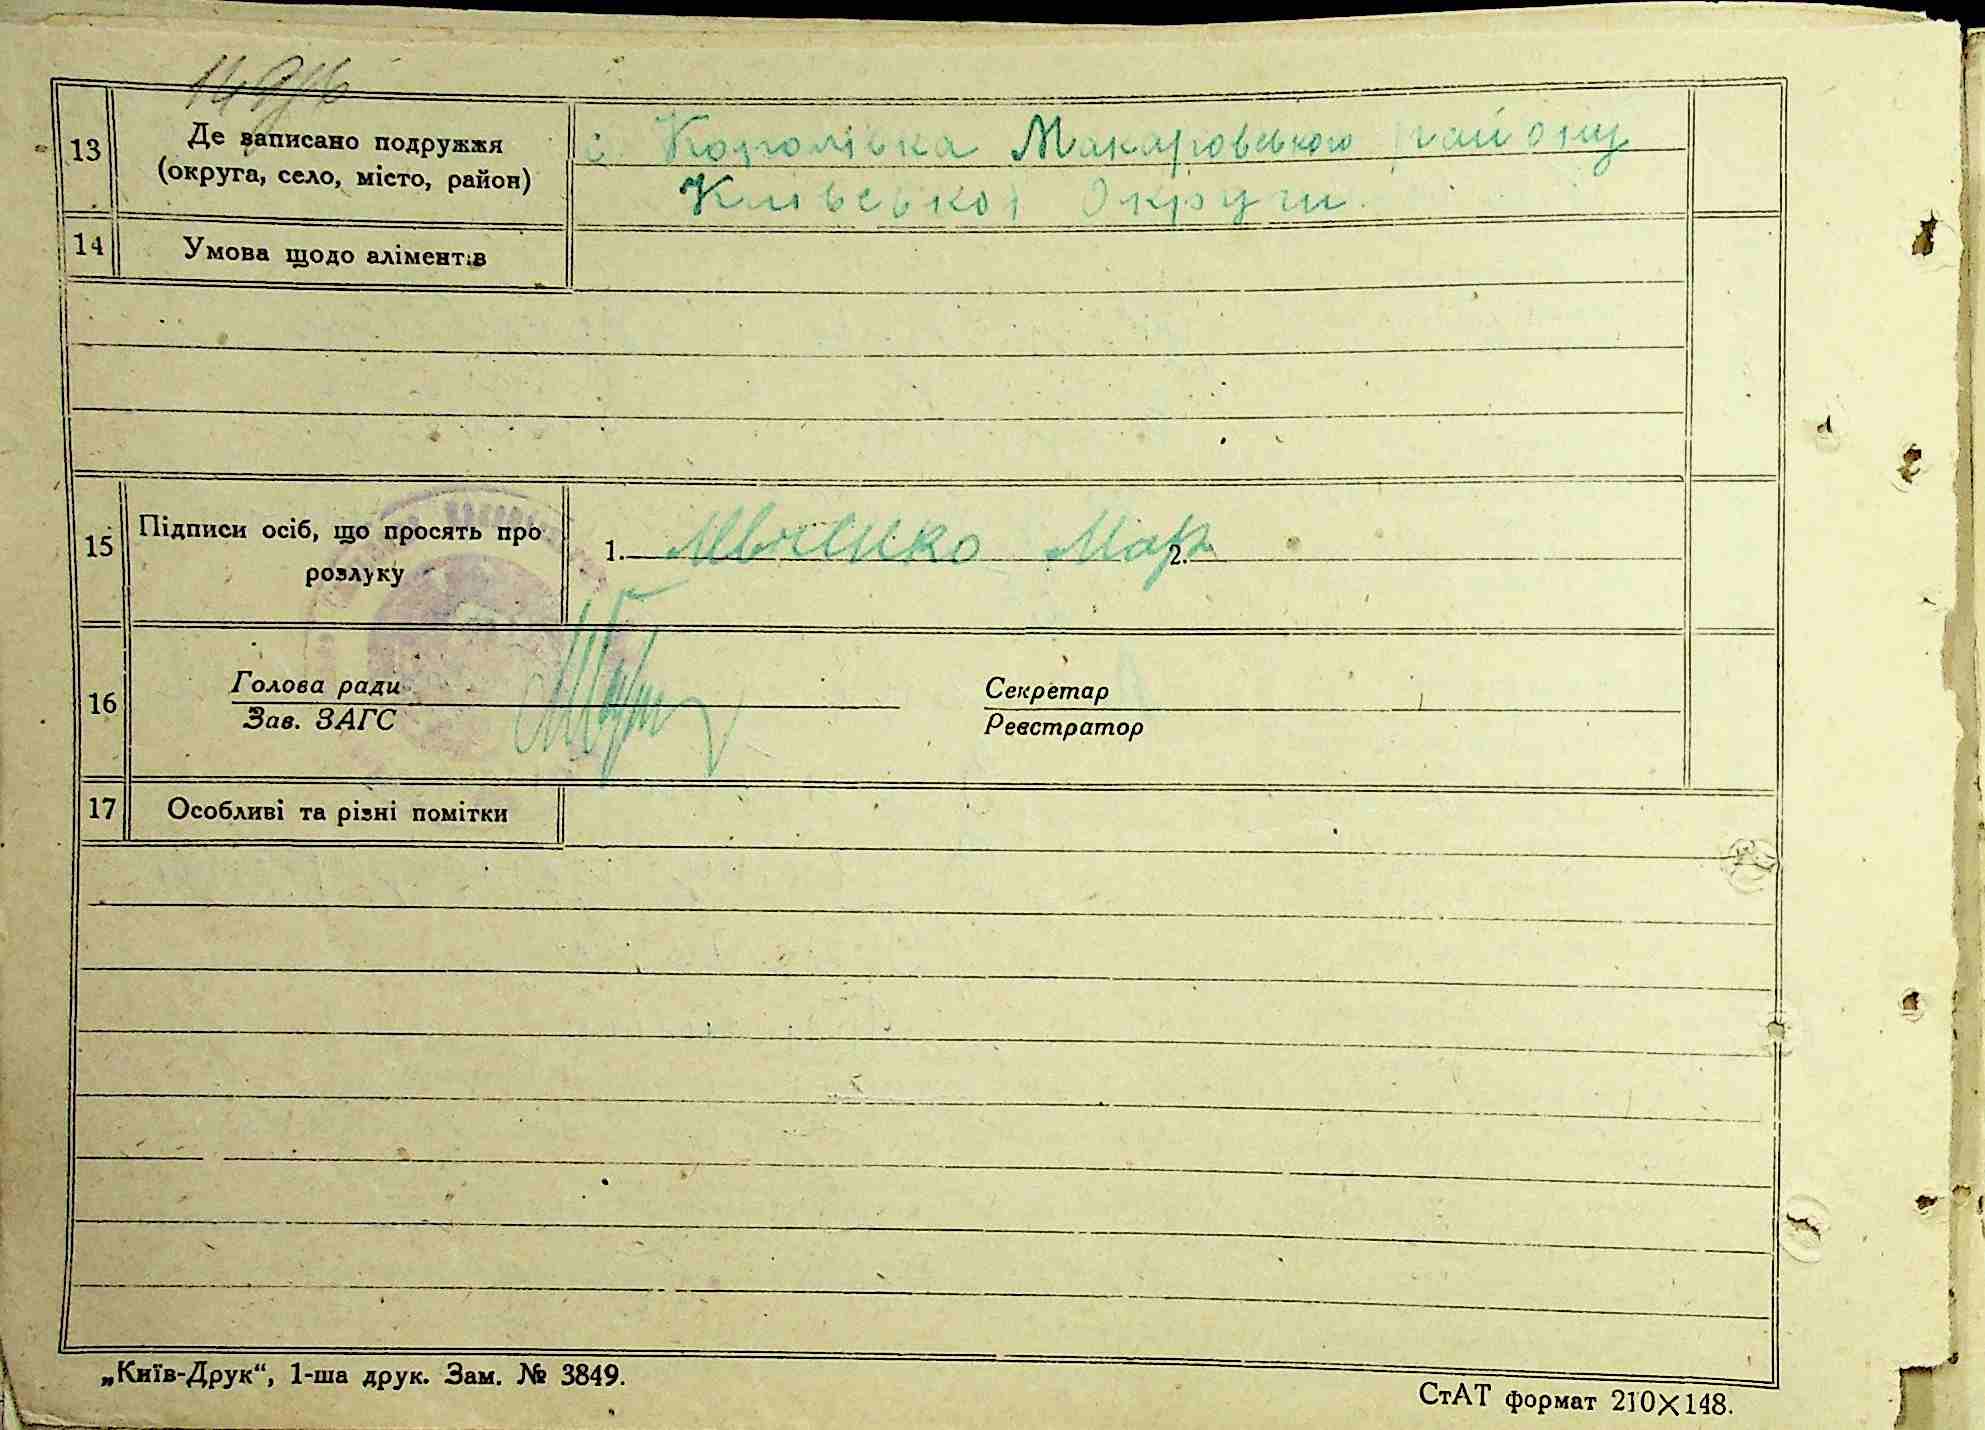 13
Де записано подружжя
(округа, село, місто, район)
с. Королівка Макаровського району
Київської Округи.
14
Умова щодо аліментів
15
Підписи осіб, що просять про
розлуку
1.
Мар
2.
16
Голова ради
Зав. ЗАГС
Секретар
Реєстратор
17
Особливі та різні помітки
„Київ-Друк“, 1-ша друк. Зам. № 3849.
СтАТ формат 210×148.